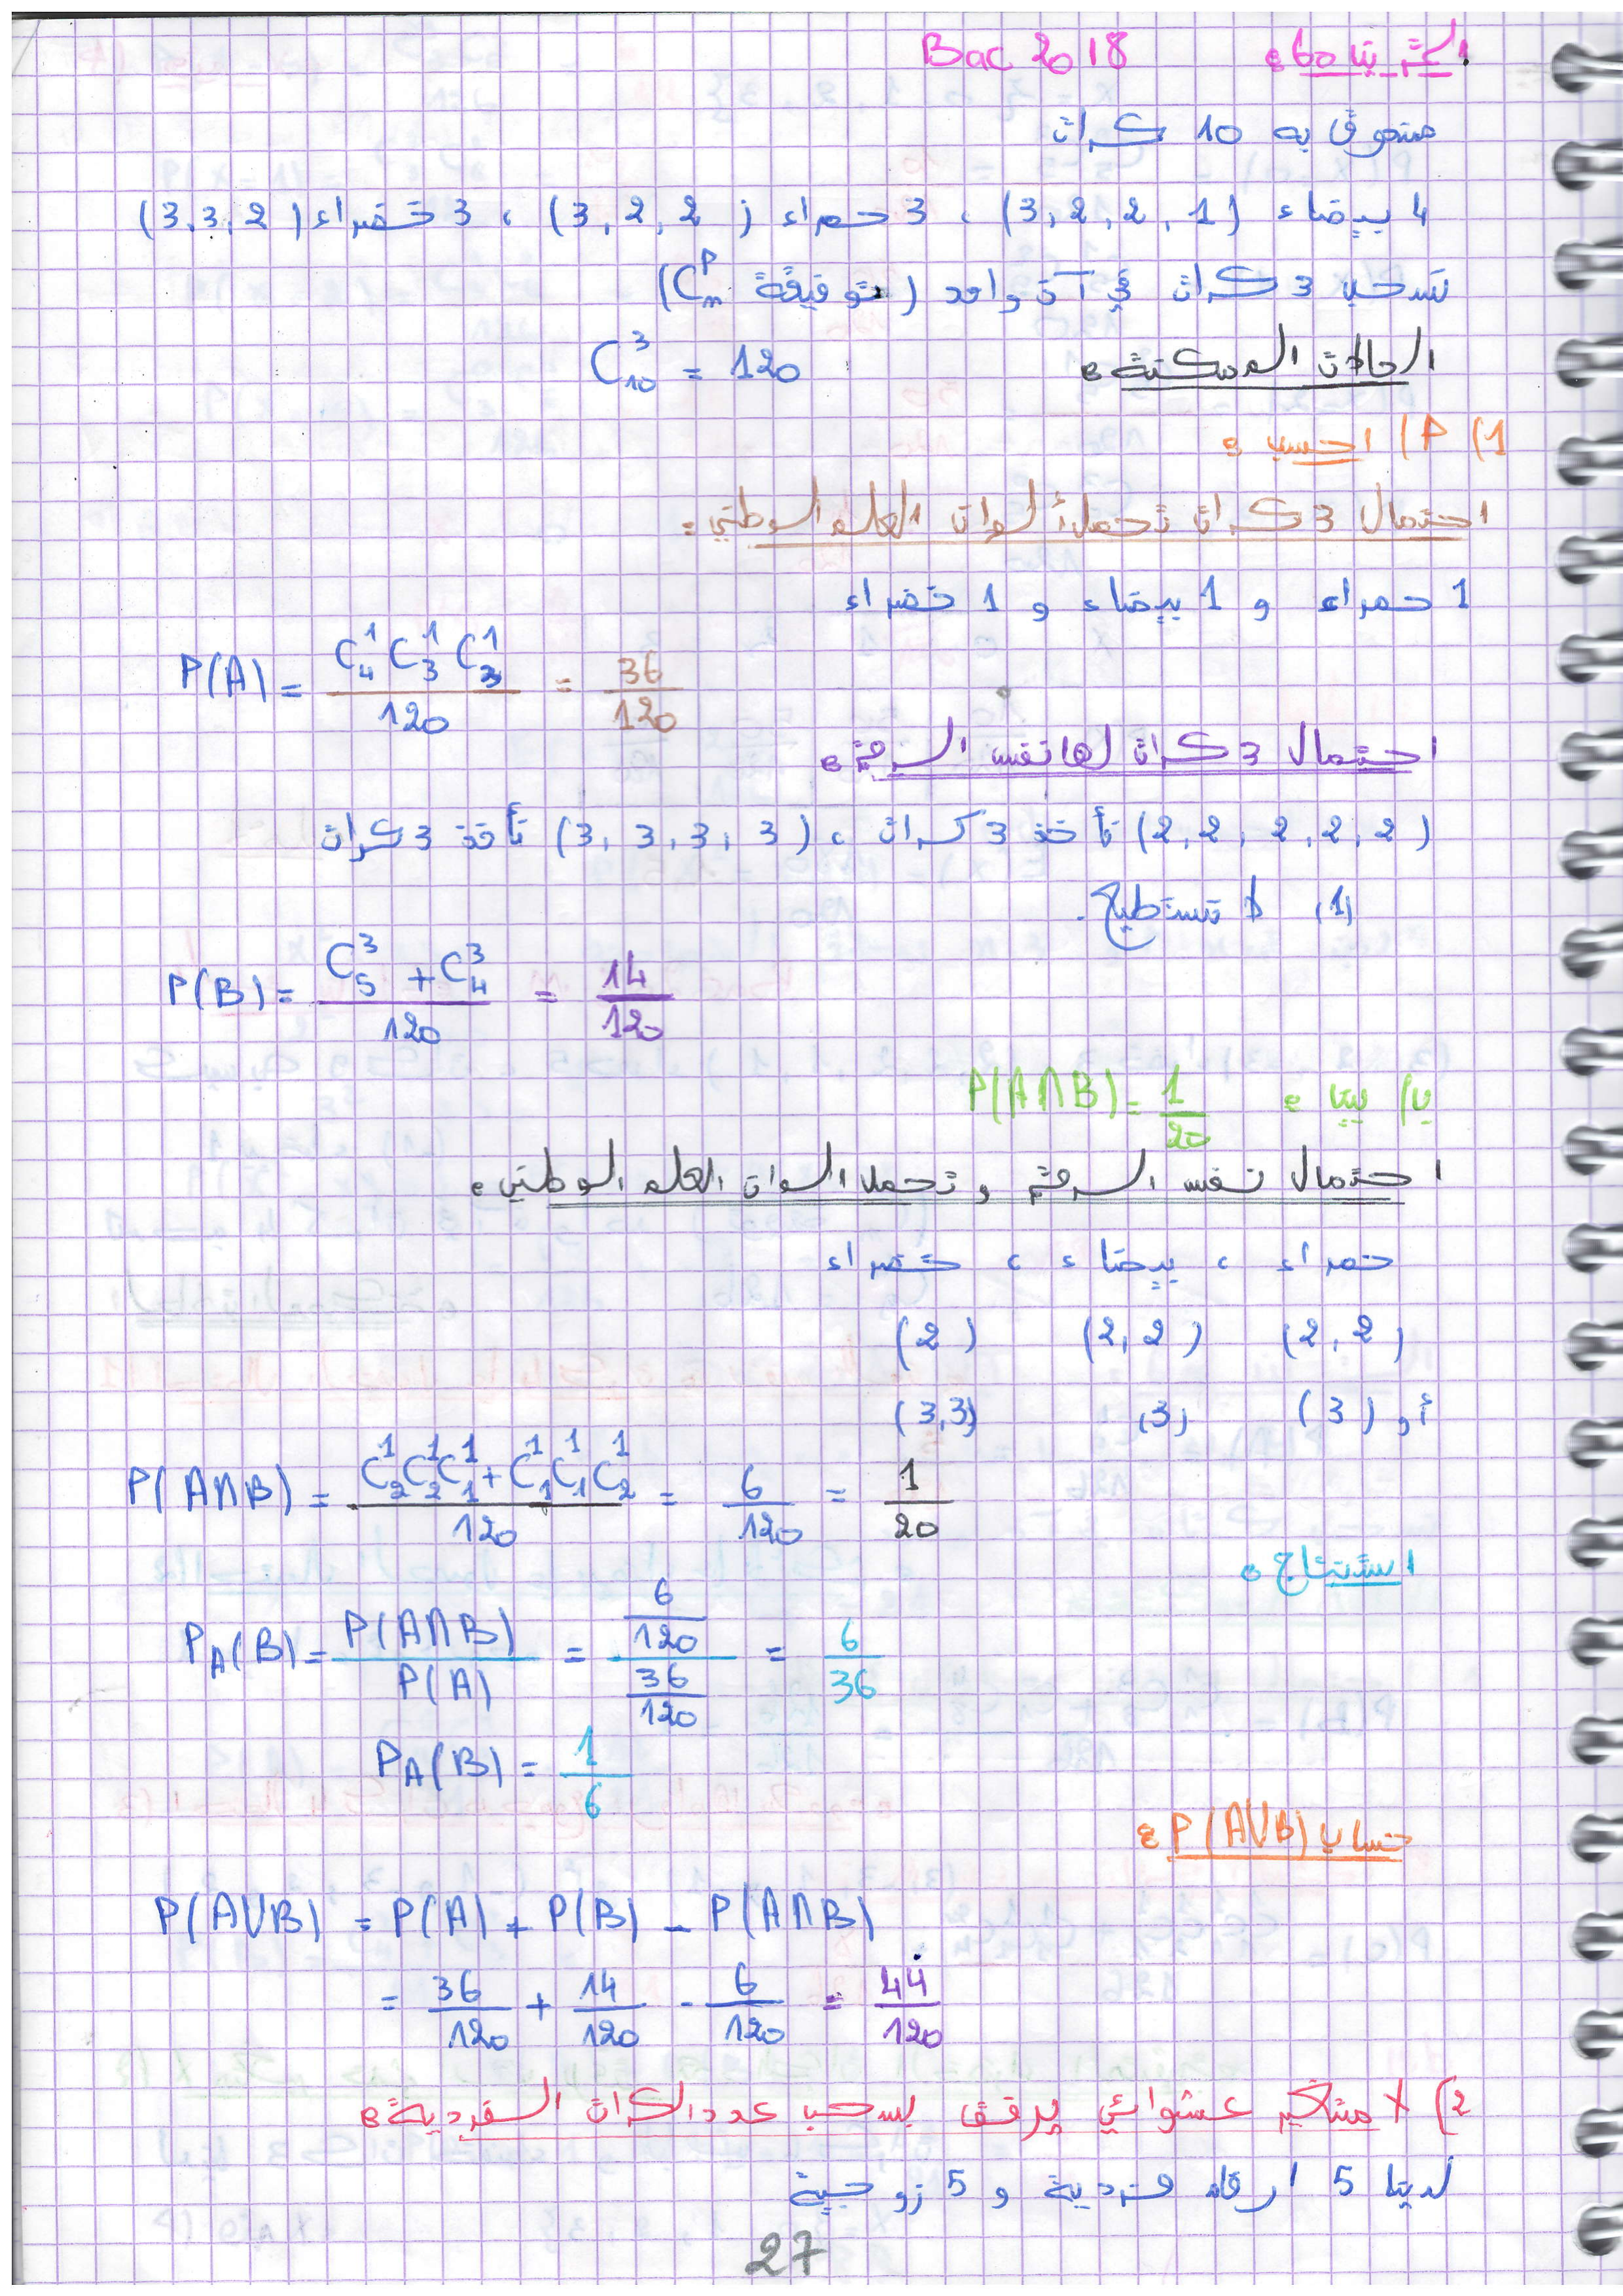 اكثر بتاحه Bac 2018
صندوق به 10 كرات
4 بيضاء (3, 2, 2, 1) ، 3 حمراء (3, 2, 2) ، 3 خضراء (3, 3, 2)
نسحب 3 كرات في آن واحد (توفيقة C_n^P)
الحالات الممكنة: C_10^3 = 120
1) P) احسب:
احتمال 3 كرات تحمل ألوان العلم الوطني:
1 حمراء و 1 بيضاء و 1 خضراء
P(A) = C_4^1 C_3^1 C_3^1 / 120 = 36/120
احتمال 3 كرات لها نفس الرقم:
(2, 2, 2, 2, 2) نأخذ 3 كرات ، (3, 3, 3, 3) نأخذ 3 كرات
(1) لا نستطيع.
P(B) = (C_5^3 + C_4^3) / 120 = 14/120
ب) بين: P(A∩B) = 1/20
احتمال نفس الرقم و تحمل الوان العلم الوطني:
حمراء ، بيضاء ، خضراء
(2, 2) (2, 2) (2)
أو (3) (3) (3,3)
P(A∩B) = (C_2^1 C_2^1 C_1^1 + C_1^1 C_1^1 C_2^1) / 120 = 6/120 = 1/20
استنتاج:
P_A(B) = P(A∩B) / P(A) = (6/120) / (36/120) = 6/36
P_A(B) = 1/6
حساب P(A∪B):
P(A∪B) = P(A) + P(B) - P(A∩B)
= 36/120 + 14/120 - 6/120 = 44/120
2) X متغير عشوائي يرفق بسحب عدد الكرات الفردية:
لدينا 5 ارقام فردية و 5 زوجية
27